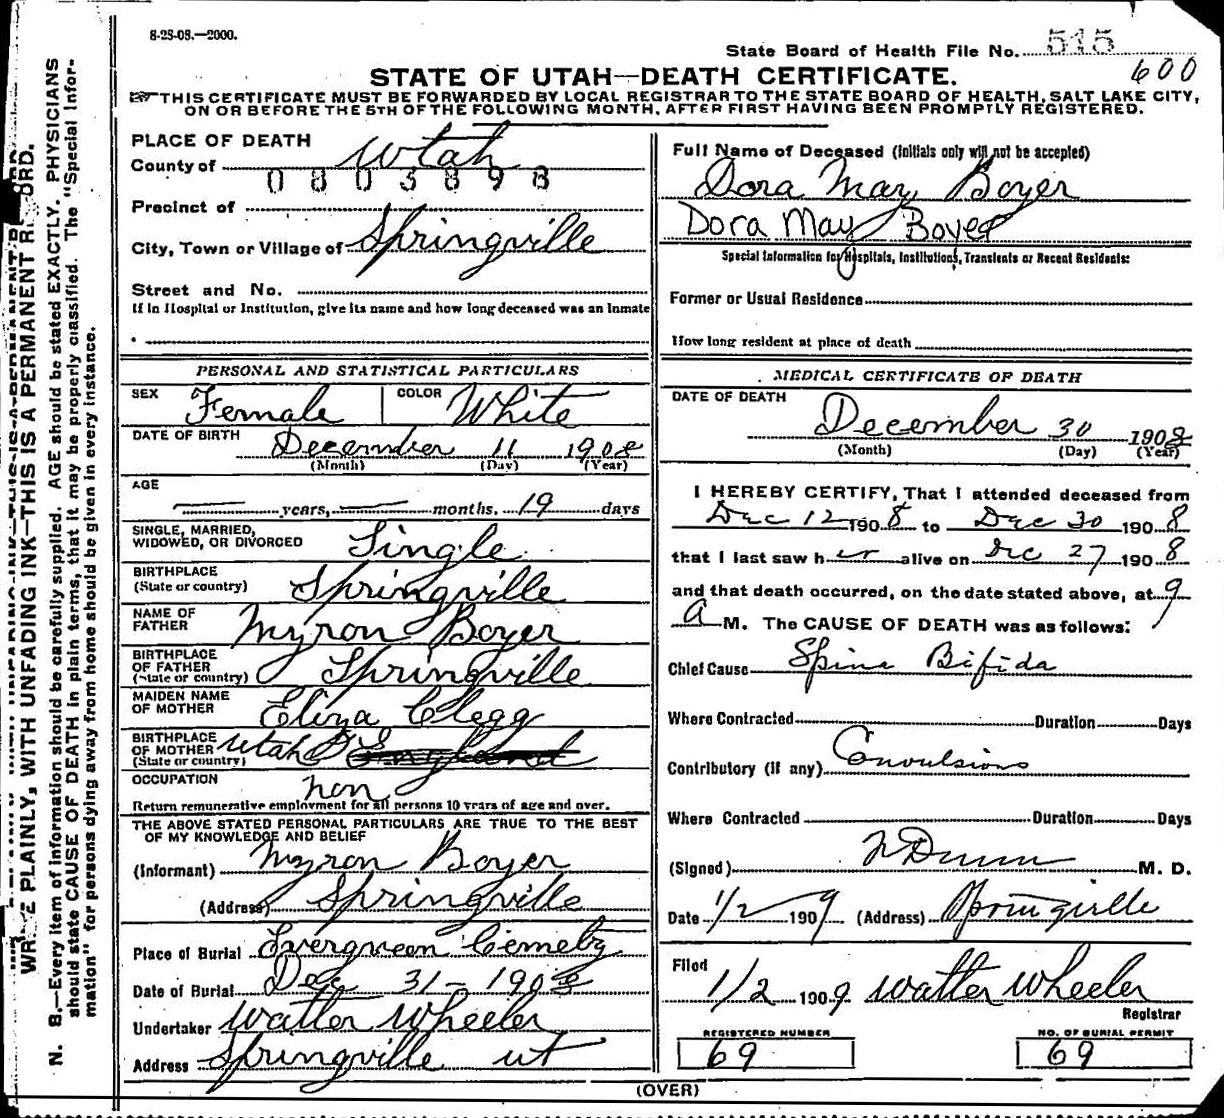 8-28-08.—2000.
State Board of Health File No. 515
600
STATE OF UTAH—DEATH CERTIFICATE.
THIS CERTIFICATE MUST BE FORWARDED BY LOCAL REGISTRAR TO THE STATE BOARD OF HEALTH, SALT LAKE CITY,
ON OR BEFORE THE 5TH OF THE FOLLOWING MONTH, AFTER FIRST HAVING BEEN PROMPTLY REGISTERED.
PLACE OF DEATH
County of Utah
0803898
Precinct of
City, Town or Village of Springville
Street and No.
If in Hospital or Institution, give its name and how long deceased was an inmate
PERSONAL AND STATISTICAL PARTICULARS
SEX Female COLOR White
DATE OF BIRTH December 11 1908
(Month) (Day) (Year)
AGE
— years, — months, 19 days
SINGLE, MARRIED,
WIDOWED, OR DIVORCED Single
BIRTHPLACE
(State or country) Springville
NAME OF
FATHER Myron Boyer
BIRTHPLACE
OF FATHER
(State or country) Springville
MAIDEN NAME
OF MOTHER Eliza Clegg
BIRTHPLACE
OF MOTHER
(State or country) Utah England
OCCUPATION non
Return remunerative employment for all persons 10 years of age and over.
THE ABOVE STATED PERSONAL PARTICULARS ARE TRUE TO THE BEST
OF MY KNOWLEDGE AND BELIEF
(Informant) Myron Boyer
(Address) Springville
Place of Burial Evergreen Cemetry
Date of Burial Dec 31 - 1908
Undertaker Walter Wheeler
Address Springville ut
Full Name of Deceased (Initials only will not be accepted)
Dora May Boyer
Dora May Boyer
Special Information for Hospitals, Institutions, Transients or Recent Residents:
Former or Usual Residence
How long resident at place of death
MEDICAL CERTIFICATE OF DEATH
DATE OF DEATH
December 30 1908
(Month) (Day) (Year)
I HEREBY CERTIFY, That I attended deceased from
Dec 12 1908 to Dec 30 1908
that I last saw her alive on Dec 27 1908
and that death occurred, on the date stated above, at 9
A M. The CAUSE OF DEATH was as follows:
Chief Cause Spina Bifida
Where Contracted Duration Days
Contributory (if any) Convulsions
Where Contracted Duration Days
(Signed) Dunn M. D.
Date 1/2 1909 (Address) Springville
Filed
1/2 1909 Walter Wheeler
Registrar
REGISTERED NUMBER
69
NO. OF BURIAL PERMIT
69
(OVER)
PLAINLY, WITH UNFADING INK—THIS IS A PERMANENT
N. B.—Every item of information should be carefully supplied. AGE should be stated EXACTLY. PHYSICIANS
should state CAUSE OF DEATH in plain terms, that it may be properly classified. The "Special Infor-
mation" for persons dying away from home should be given in every instance.